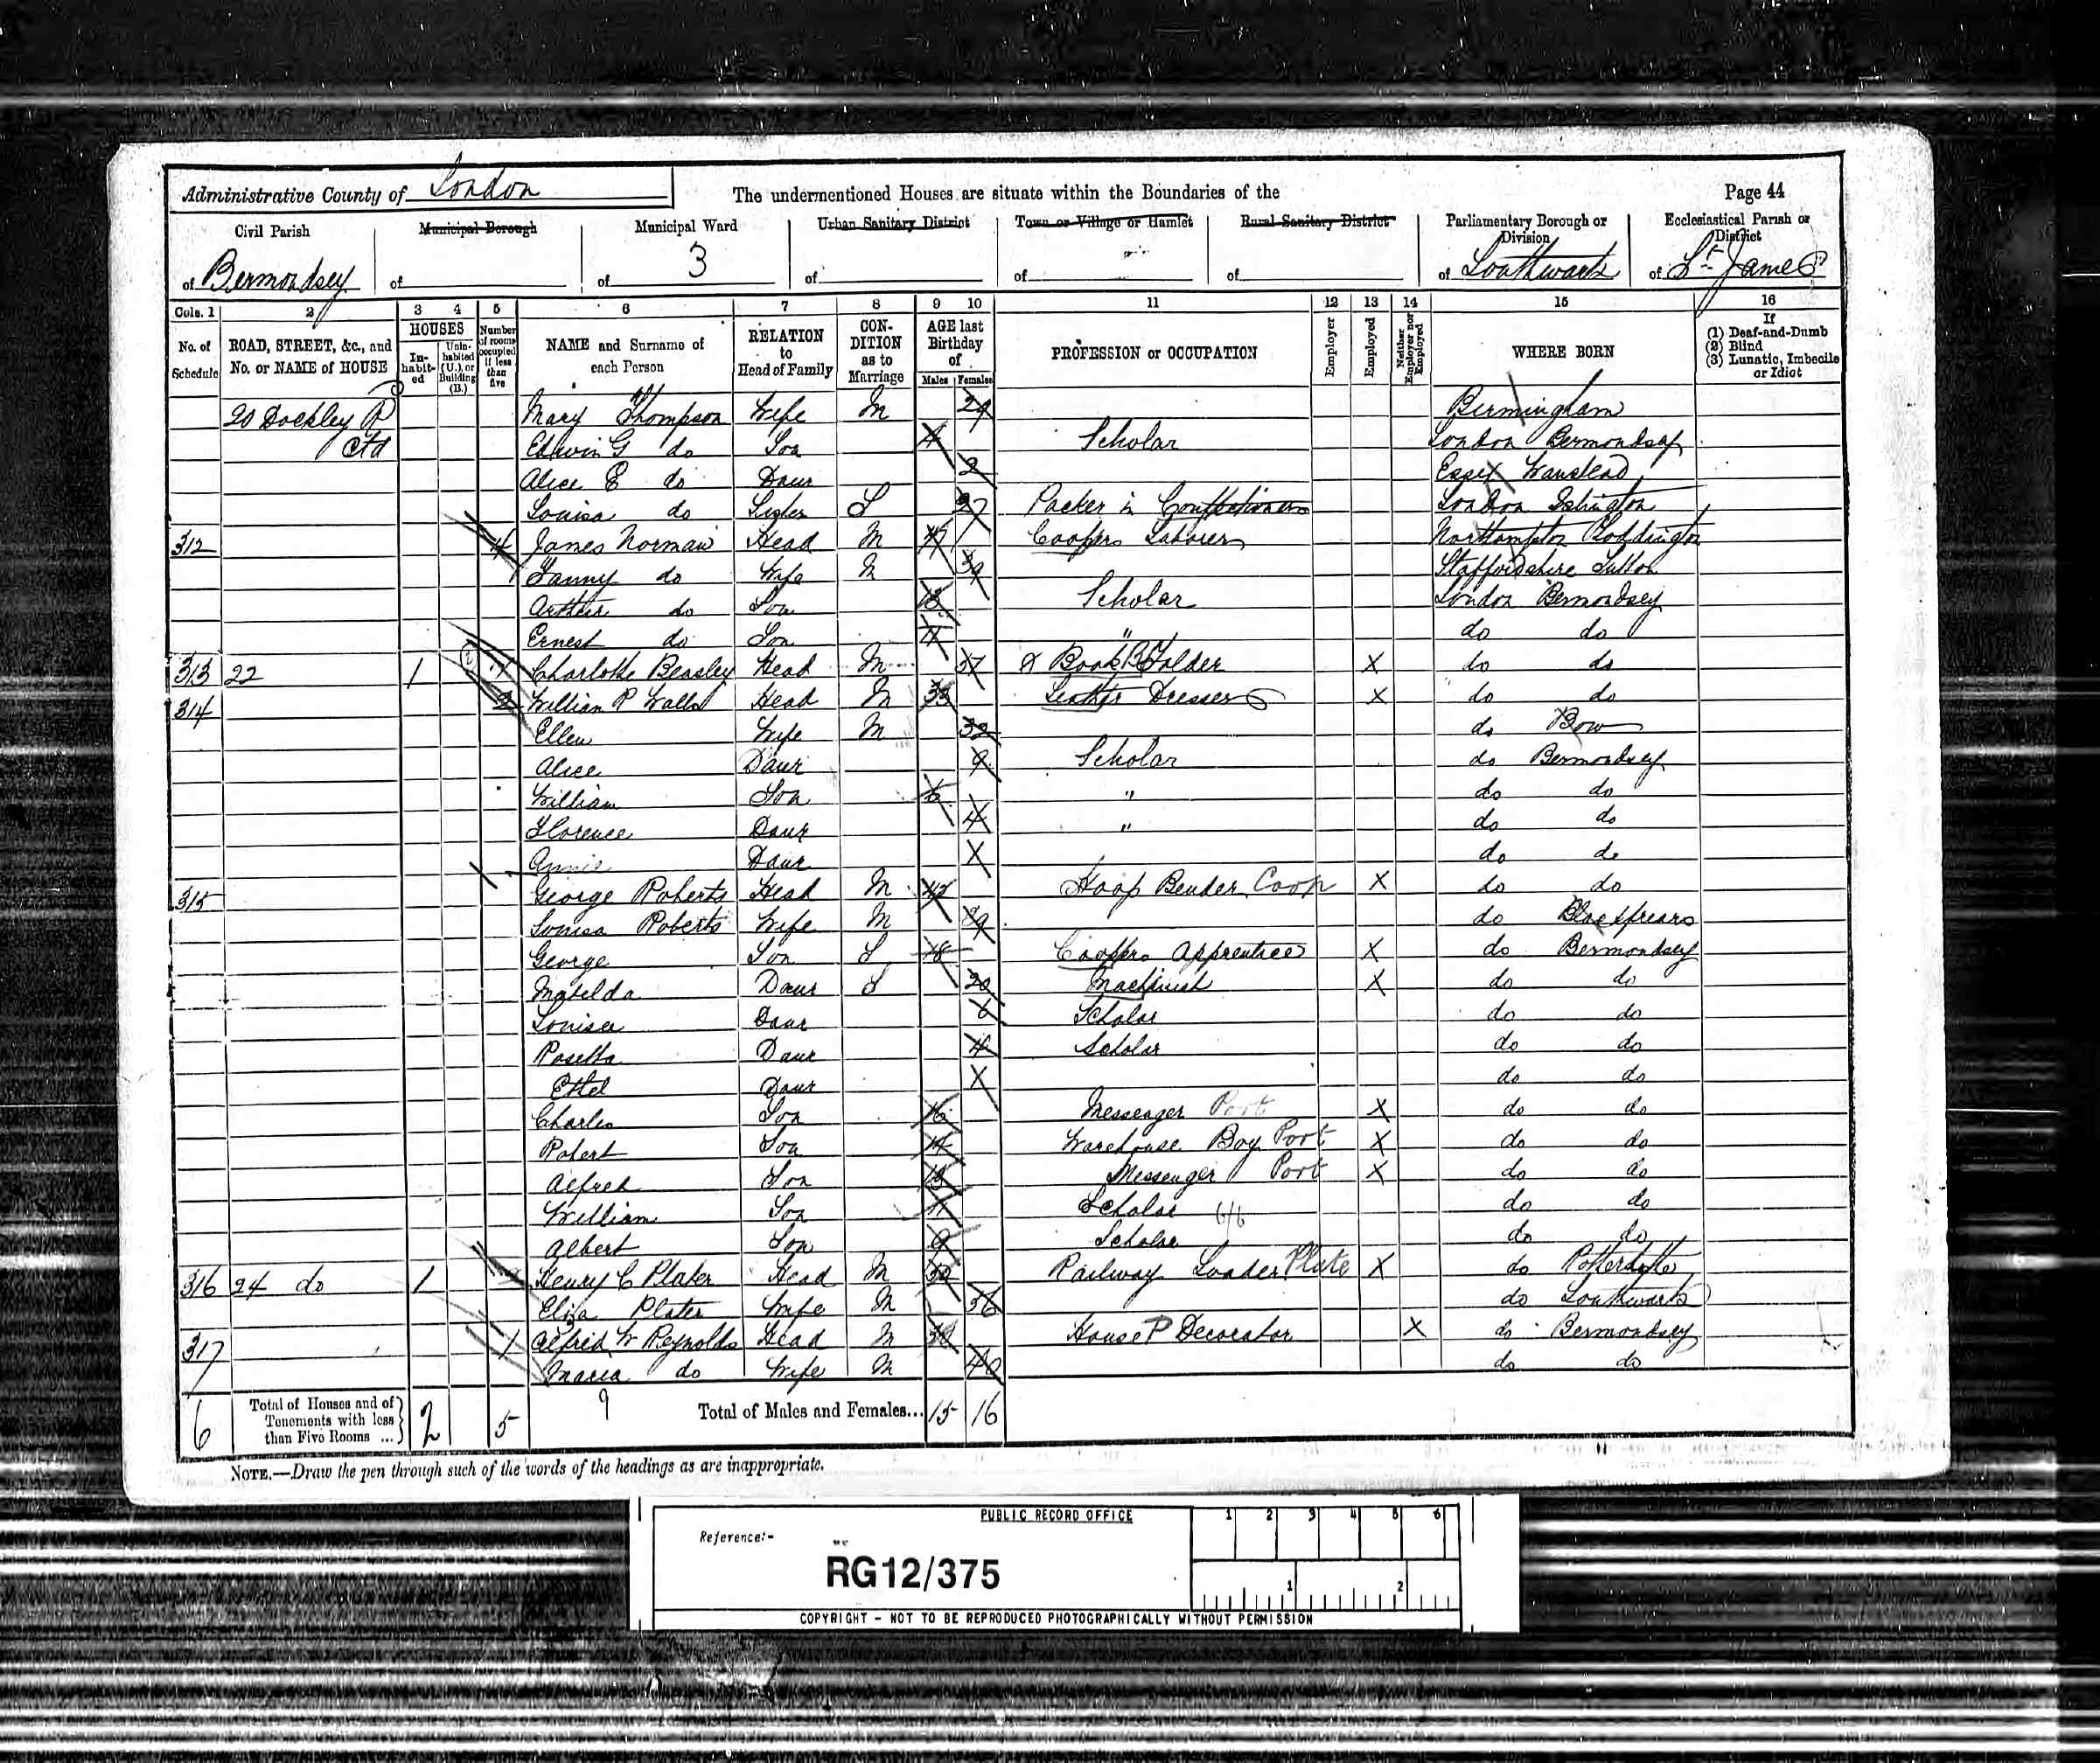 Administrative County of London The undermentioned Houses are situate within the Boundaries of the Page 44
Civil Parish Municipal Borough Municipal Ward Urban Sanitary District Town or Village or Hamlet Rural Sanitary District Parliamentary Borough or Division Ecclesiastical Parish or District
of Bermondsey of of 3 of of of of Southwark of St James
Cols. 1 2 3 4 5 6 7 8 9 10 11 12 13 14 15 16
No. of Schedule ROAD, STREET, &c., and No. or NAME of HOUSE HOUSES Inhabited Uninhabited (U.), or Building (B.) Number of rooms occupied if less than five NAME and Surname of each Person RELATION to Head of Family CONDITION as to Marriage AGE last Birthday of Males Females PROFESSION or OCCUPATION Employer Employed Neither Employer nor Employed WHERE BORN If (1) Deaf-and-Dumb (2) Blind (3) Lunatic, Imbecile or Idiot
20 Dockley Rd Mary Thompson Wife M 29 Birmingham
Ctd Edwin G do Son 4 Scholar London Bermondsey
Alice E do Daur 2 Essex Wanstead
Louisa do Sister S 27 Packer in London Islington
312 4 James Norman Head M Coopers Laborer Northampton
Fanny do Wife M 39 Staffordshire Sutton
Arthur do Son 13 Scholar London Bermondsey
Ernest do Son 11 " do do
313 22 1 1 Charlotte Beasley Head M 37 Book Folder X do do
314 2 William P Walls Head M 33 Leather Dresser X do do
Ellen Wife M 32 do Bow
Alice Daur 9 Scholar do Bermondsey
William Son " do do
Florence Daur 4 " do do
Annie Daur do do
315 George Roberts Head M 42 Hoop Bender Coop X do do
Louisa Roberts Wife M 39 do Blackfriars
George Son S 18 Coopers Apprentice X do Bermondsey
Matelda Daur S 20 Machinist X do do
Louisa Daur 6 Scholar do do
Rosetta Daur 4 Scholar do do
Ethel Daur do do
Charles Son 16 Messenger Port X do do
Robert Son 14 Warehouse Boy Port X do do
Alfred Son 13 Messenger Port X do do
William Son 11 Scholar do do
Albert Son 9 Scholar do do
316 24 do 1 Henry C Plater Head M 32 Railway Loader Plate X do Rotherhithe
Eliza Plater Wife M 36 do Southwark
317 1 Alfred W Reynolds Head M 38 House P Decorator X do Bermondsey
Maria do Wife M 40 do do
6 Total of Houses and of Tenements with less than Five Rooms ... 2 5 9 Total of Males and Females... 15 16
NOTE.—Draw the pen through such of the words of the headings as are inappropriate.
PUBLIC RECORD OFFICE 1 2 3 4 5 6
Reference:-
RG12/375
1 2
COPYRIGHT - NOT TO BE REPRODUCED PHOTOGRAPHICALLY WITHOUT PERMISSION